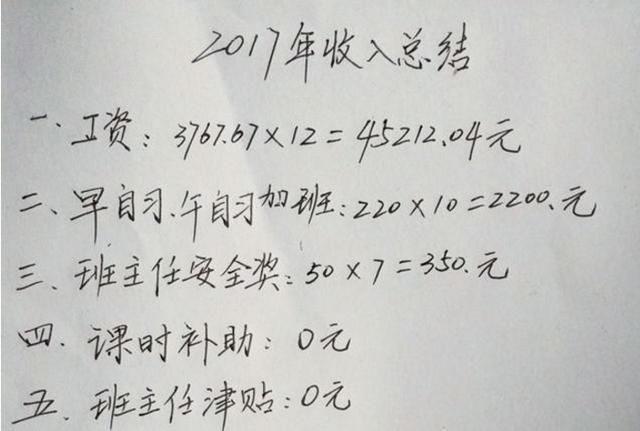 2017年收入总结
一、工资：3767.67×12=45212.04元
二、早自习、午自习加班：220×10=2200.元
三、班主任安全奖：50×7=350.元
四、课时补助：0元
五、班主任津贴：0元